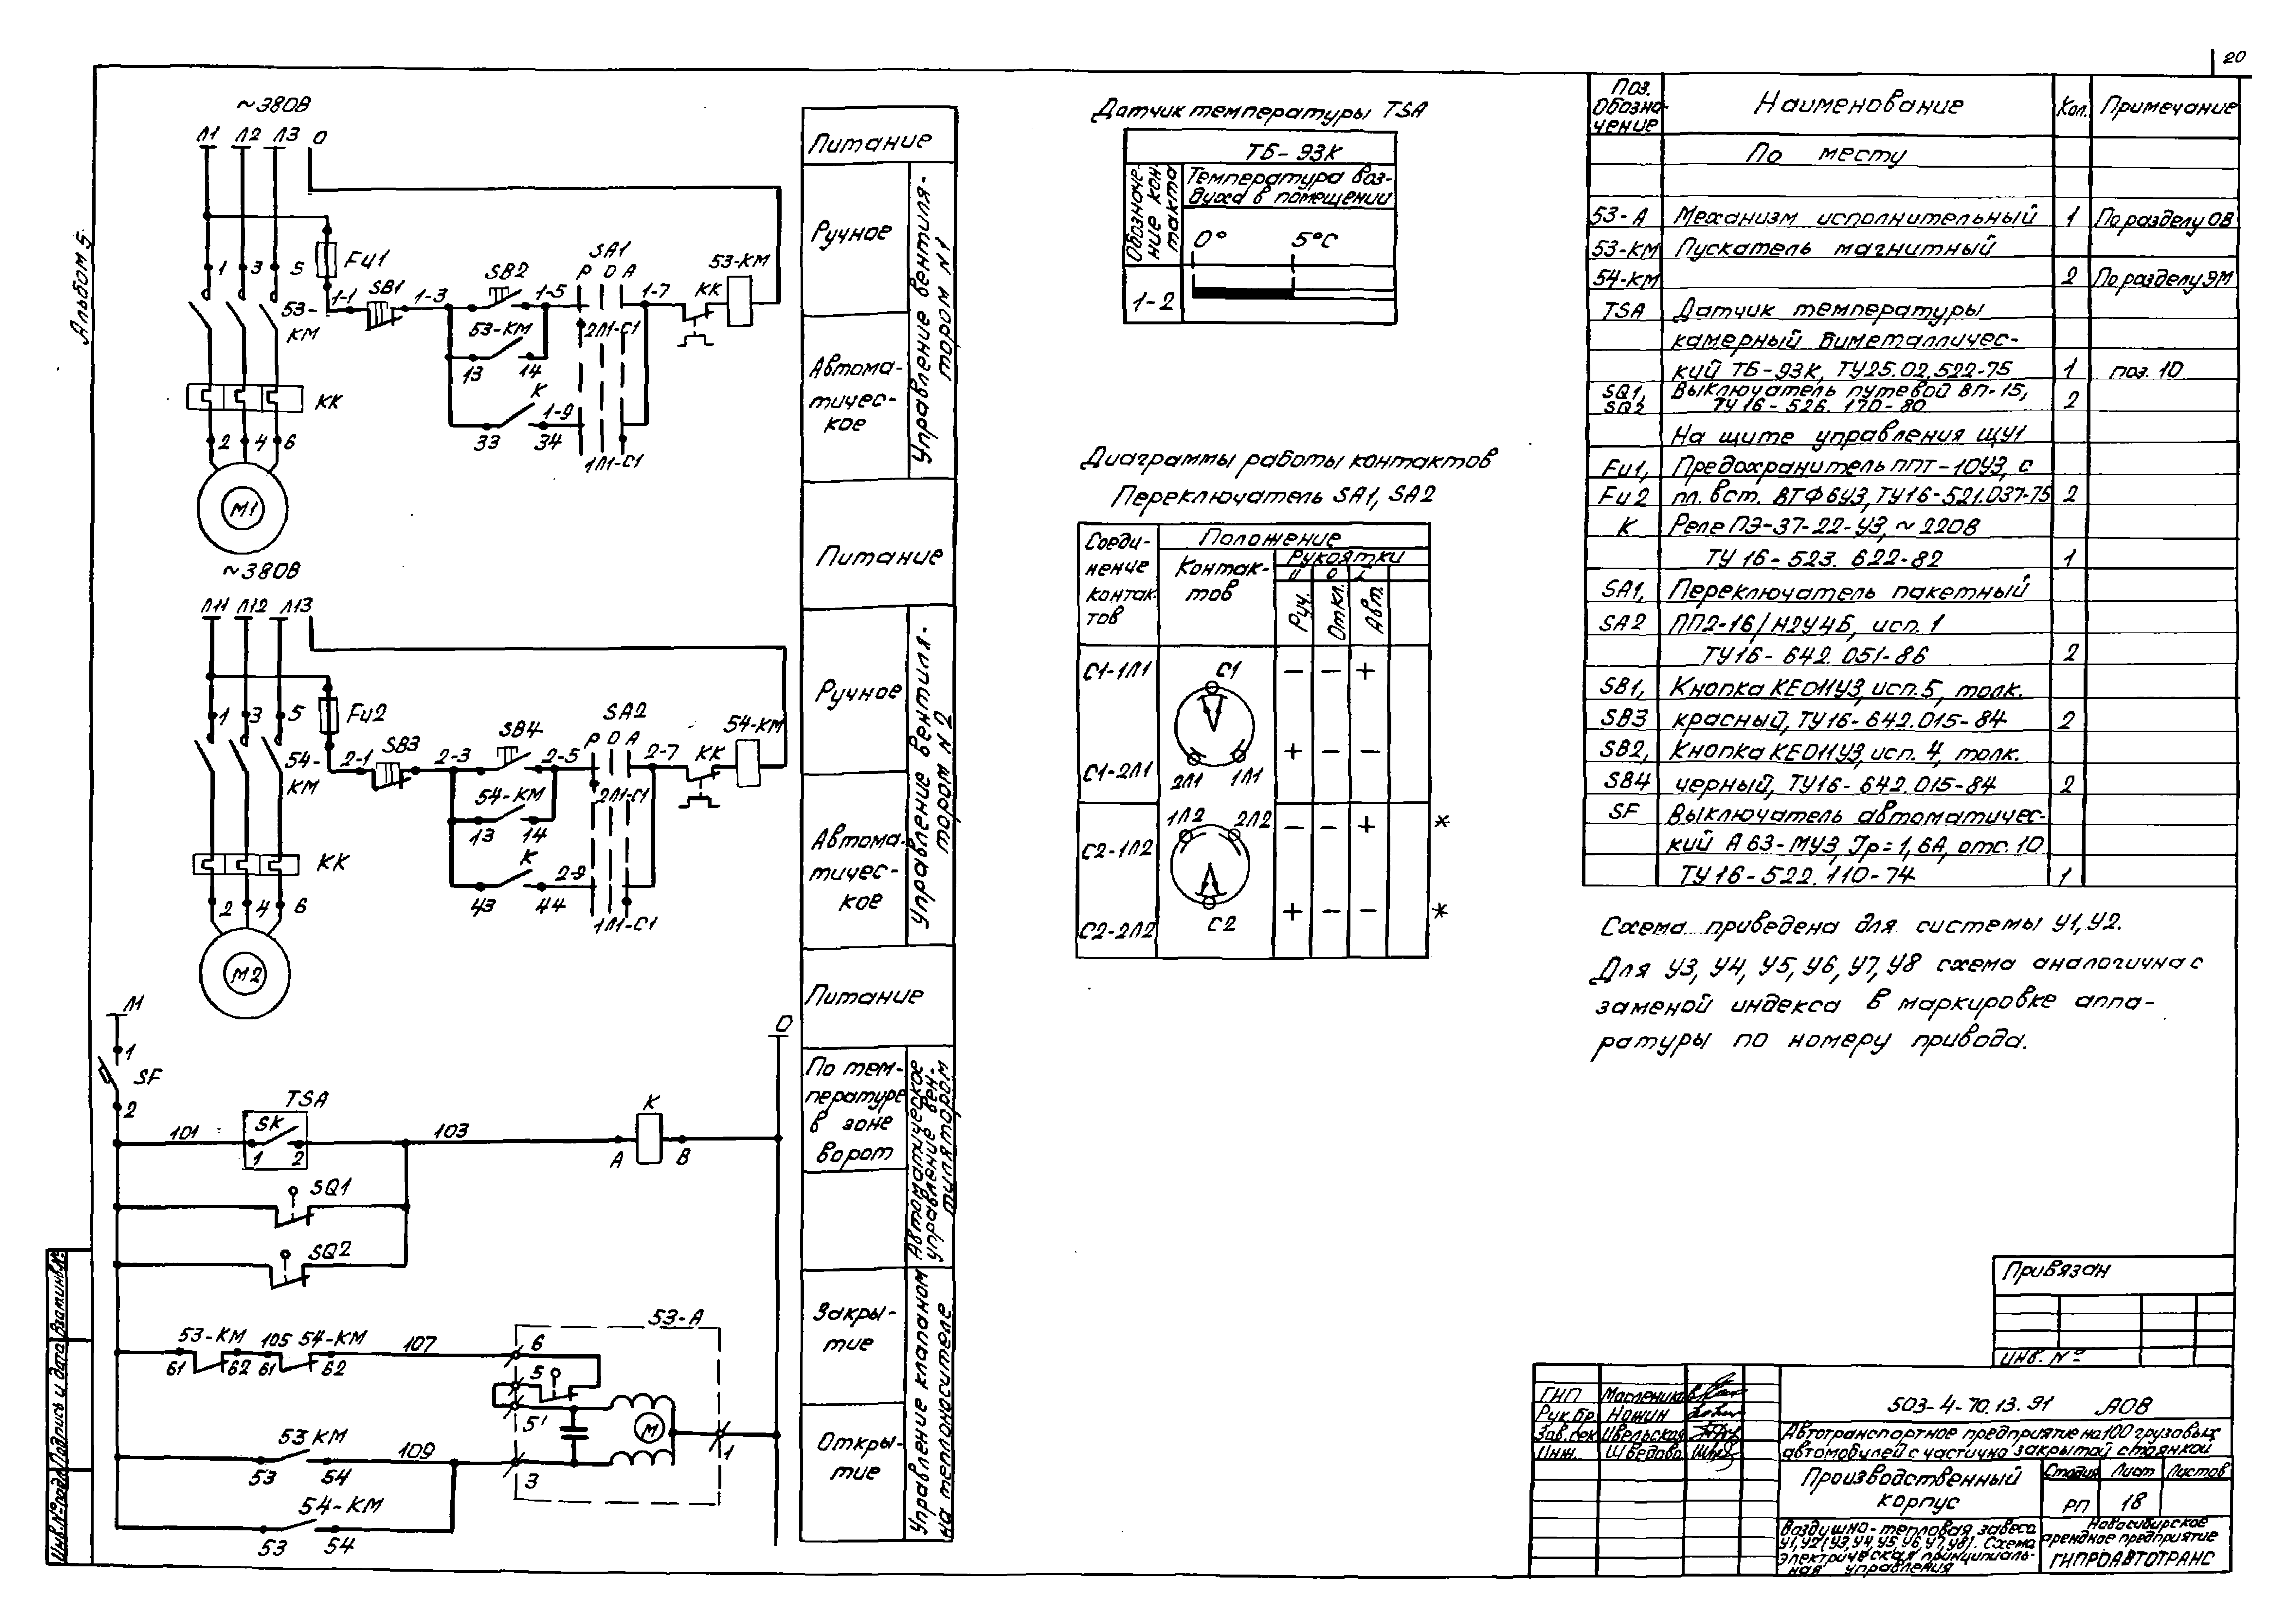 20
Альбом 5
~380В
Л1 Л2 Л3 0
Fu1
1 3 5
53-КМ
1-1 SB1 1-3 SB2 1-5
SA1
Р О А
1-7 КК 53-КМ
53-КМ
13 14
2Л1-С1
К
33 1-9 34
1Л1-С1
КК
2 4 6
М1
~380В
Л11 Л12 Л13
Fu2
1 3 5
54-КМ
2-1 SB3 2-3 SB4 2-5
SA2
Р О А
2-7 КК 54-КМ
54-КМ
13 14
2Л1-С1
К
43 2-9 44
1Л1-С1
КК
2 4 6
М2
Л
0
1
SF
2
TSA
101 SK 103
1 2
К
А В
SQ1
SQ2
53-КМ 105 54-КМ 107
61 62 61 62
53-А
6
5
5'
М
1
3
53 КМ 109
53 54
54-КМ
53 54
Питание
Ручное
Автома-
тичес-
кое
Управление вентиля-
тором N1
Питание
Ручное
Автома-
тичес-
кое
Управление вентиля-
тором N2
Питание
По тем-
пературе
в зоне
ворот
Автоматическое
управление вен-
тилятором
Закры-
тие
Откры-
тие
Управление клапаном
на теплоносителе
Датчик температуры TSA
ТБ-93К
Обозначе-
ние кон-
такта
Температура воз-
духа в помещении
0° 5°С
1-2
Диаграммы работы контактов
Переключатель SA1, SA2
Соеди-
нение
контак-
тов
Положение
Контак-
тов
Рукоятки
Руч. Откл. Авт.
С1-1Л1 С1 - - +
С1-2Л1 2Л1 1Л1 + - -
С2-1Л2 1Л2 2Л2 - - + *
С2-2Л2 С2 + - - *
Поз.
Обозна-
чение
Наименование Кол. Примечание
По месту
53-А Механизм исполнительный 1 По разделу ОВ
53-КМ Пускатель магнитный
54-КМ 2 По разделу ЭМ
TSA Датчик температуры
камерный биметалличес-
кий ТБ-93К, ТУ25.02.522-75 1 поз. 10
SQ1, Выключатель путевой ВП-15,
SQ2 ТУ16-526.170-80 2
На щите управления ЩУ1
Fu1, Предохранитель ППТ-10У3, с
Fu2 пл. вст. ВТФ6У3, ТУ16-521.037-75 2
К Реле ПЭ-37-22-У3, ~220В
ТУ16-523.622-82 1
SA1, Переключатель пакетный
SA2 ПП2-16/Н2У4Б, исп. 1
ТУ16-642.051-86 2
SB1, Кнопка КЕ011У3, исп. 5, толк.
SB3 красный, ТУ16-642.015-84 2
SB2, Кнопка КЕ011У3, исп. 4, толк.
SB4 черный, ТУ16-642.015-84 2
SF Выключатель автоматичес-
кий А63-МУ3, Iр=1,6А, отс. 10
ТУ16-522.110-74 1
Схема приведена для системы У1, У2.
Для У3, У4, У5, У6, У7, У8 схема аналогична с
заменой индекса в маркировке аппа-
ратуры по номеру привода.
Привязан
Инв. №
ГИП
Рук.бр. Нажин
Зав.сек.
Инж. Шведова
503-4-70.13.91 АОВ
Автотранспортное предприятие на 100 грузовых
автомобилей с частично закрытой стоянкой
Производственный
корпус
Стадия Лист Листов
РП 18
Воздушно-тепловая завеса
У1, У2 (У3, У4, У5, У6, У7, У8). Схема
электрическая принципиаль-
ная управления
Новосибирское
арендное предприятие
ГИПРОАВТОТРАНС
Взам.инв.№
Подпись и дата
Инв.№ подл.